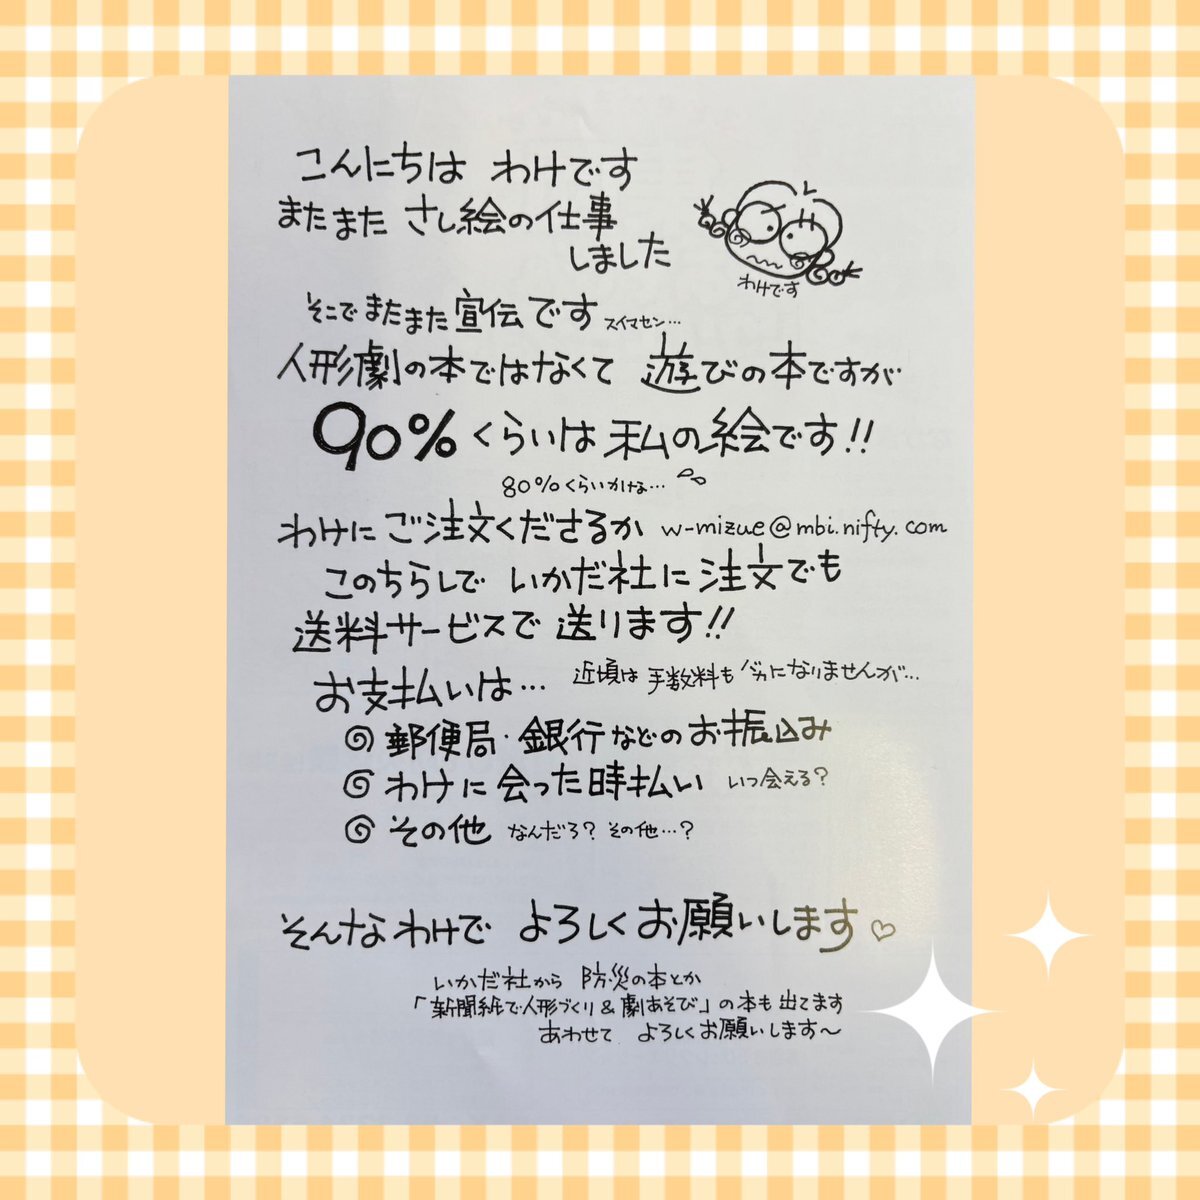 こんにちは わけです
またまた さし絵の仕事
しました
わけです
そこで またまた 宣伝です スイマセン…
人形劇の本ではなくて 遊びの本ですが
90%くらいは 私の絵です!!
80%くらいかな…
わけに ご注文くださるか w-mizue@mbi.nifty.com
このちらしで いかだ社に 注文でも
送料サービスで 送ります!!
お支払いは… 近頃は 手数料も バカになりませんが…
郵便局・銀行などのお振込み
わけに 会った時払い いつ会える?
その他 なんだろ? その他…?
そんなわけで よろしくお願いします♡
いかだ社から 防災の本とか
「新聞紙で人形づくり&劇あそび」の本も出てます
あわせて よろしくお願いします〜